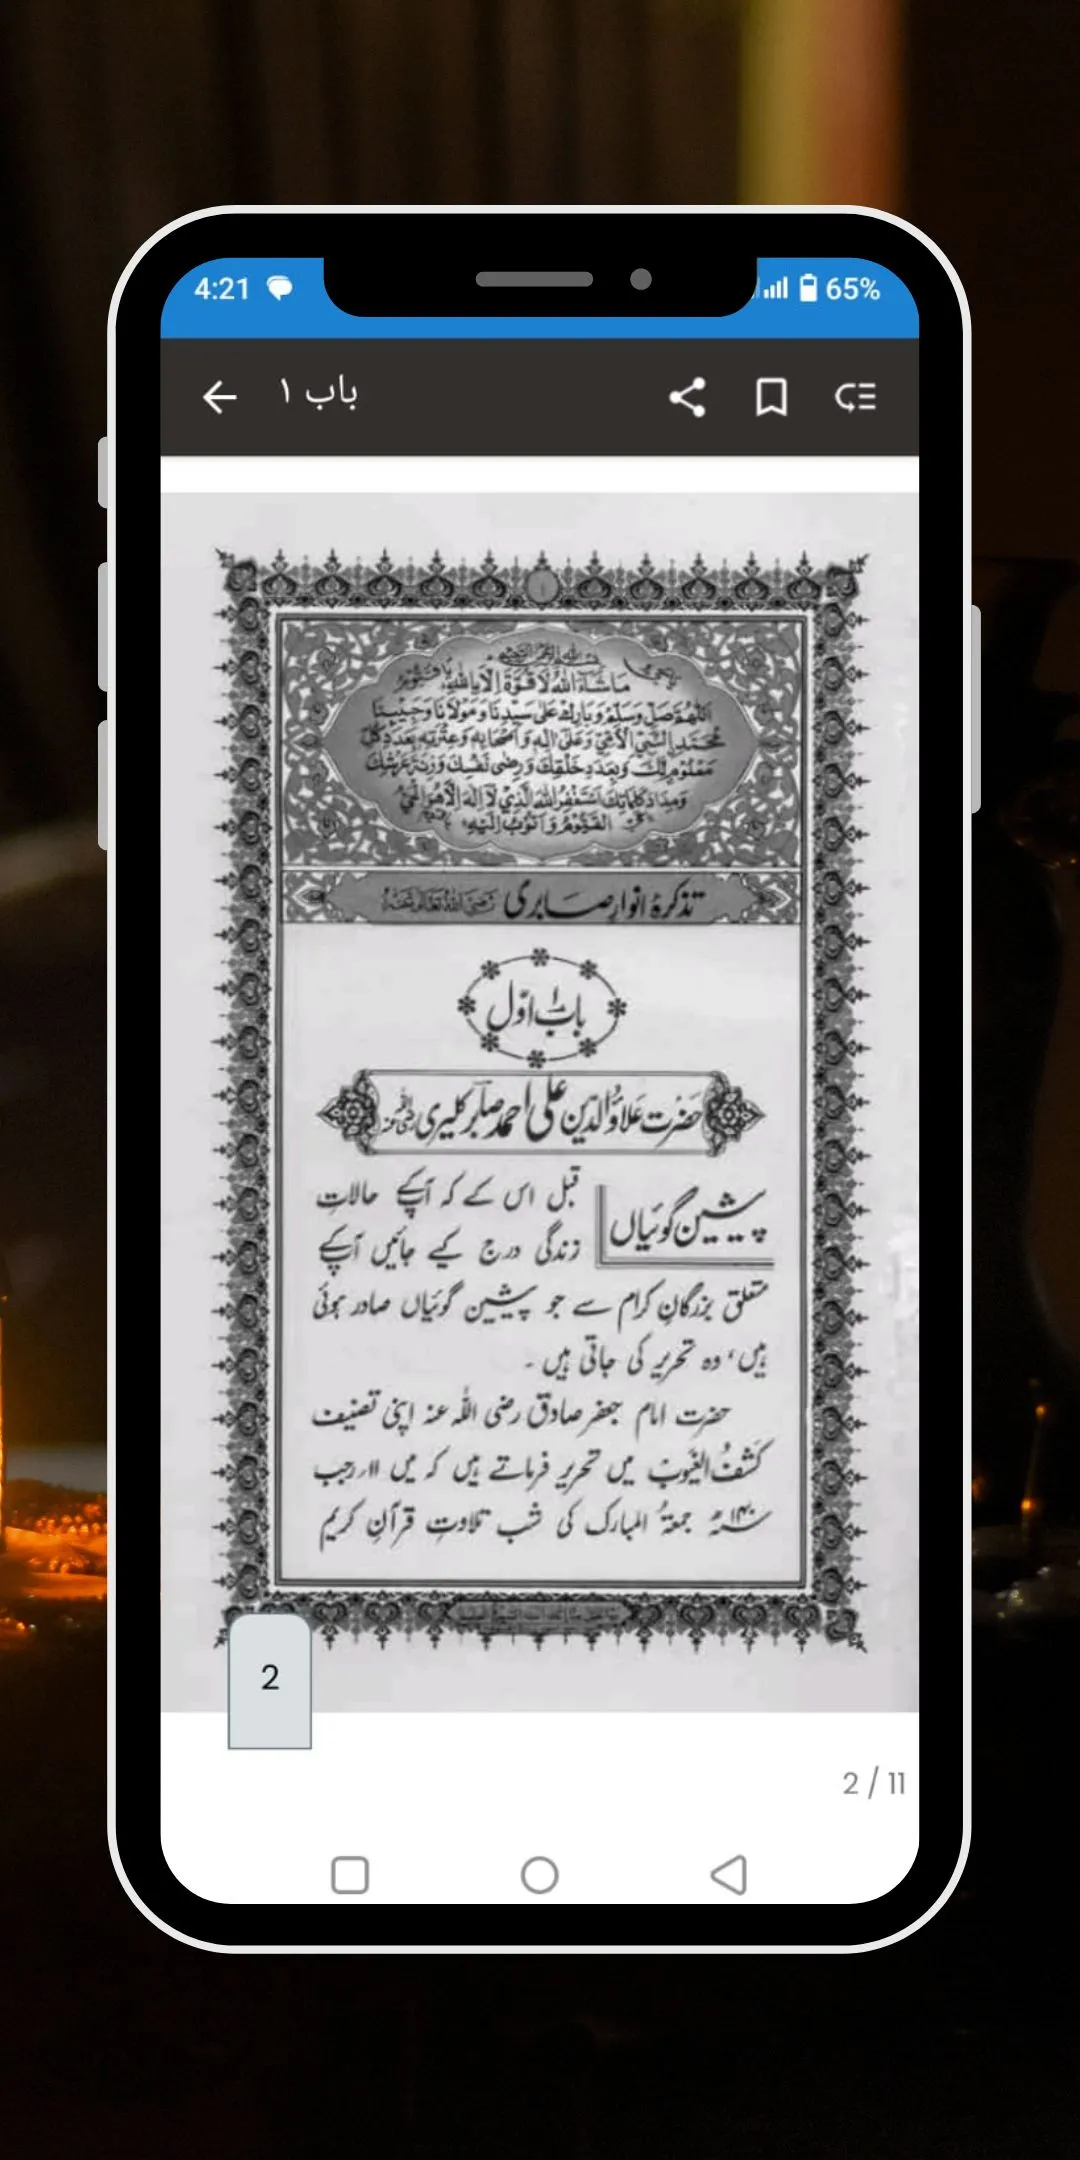 4:21
65%
باب ۱
بسم الله الرحمن الرحيم
مَاشَاءَ اللّٰهُ لَا قُوَّةَ اِلَّا بِاللّٰهِ
اَللّٰهُمَّ صَلِّ وَسَلِّمْ وَبَارِكْ عَلٰى سَيِّدِنَا وَمَوْلَانَا وَحَبِيْبِنَا
مُحَمَّدِ النَّبِيِّ الْاُمِّيِّ وَعَلٰى اٰلِهٖ وَاَصْحَابِهٖ وَعِتْرَتِهٖ بِعَدَدِ كُلِّ
مَعْلُوْمٍ لَّكَ وَبِعَدَدِ خَلْقِكَ وَرِضٰى نَفْسِكَ وَزِنَةِ عَرْشِكَ
وَمِدَادِ كَلِمَاتِكَ اَسْتَغْفِرُ اللّٰهَ الَّذِيْ لَا اِلٰهَ اِلَّا هُوَ الْحَيُّ
الْقَيُّوْمُ وَاَتُوْبُ اِلَيْهِ
تذکرۂ انوارِ صابری
بابِ اوّل
حضرت علاؤالدین علی احمد صابر کلیری
پیشین گوئیاں
قبل اس کے کہ آپکے حالاتِ
زندگی درج کیے جائیں آپکے
متعلق بزرگانِ کرام سے جو پیشین گوئیاں صادر ہوئی
ہیں، وہ تحریر کی جاتی ہیں۔
حضرت امام جعفر صادق رضی اللہ عنہ اپنی تصنیف
کشفُ الغیوب میں تحریر فرماتے ہیں کہ میں ۱۱ رجب
۱۴۰ھ جمعۃُ المبارک کی شب تلاوتِ قرآنِ کریم
2
2 / 11